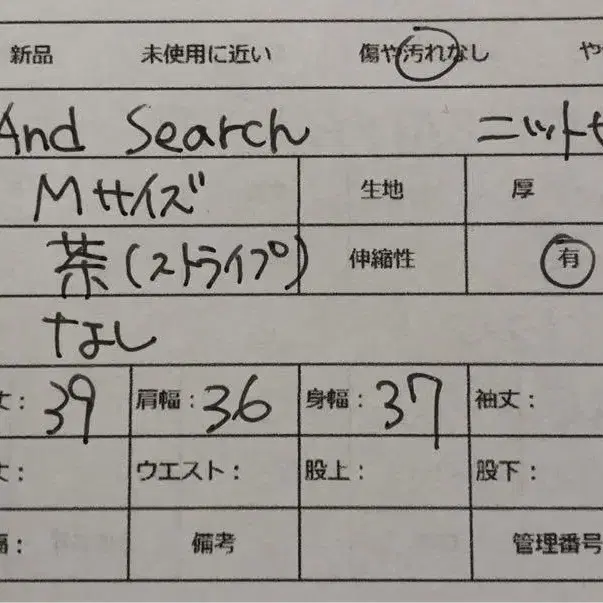 新品 未使用に近い 傷や汚れなし や
And Search ニット
Mサイズ 生地 厚
茶(ストライプ) 伸縮性 有
なし
丈: 39 肩幅: 36 身幅: 37 袖丈:
丈: ウエスト: 股上: 股下:
幅: 備考 管理番号